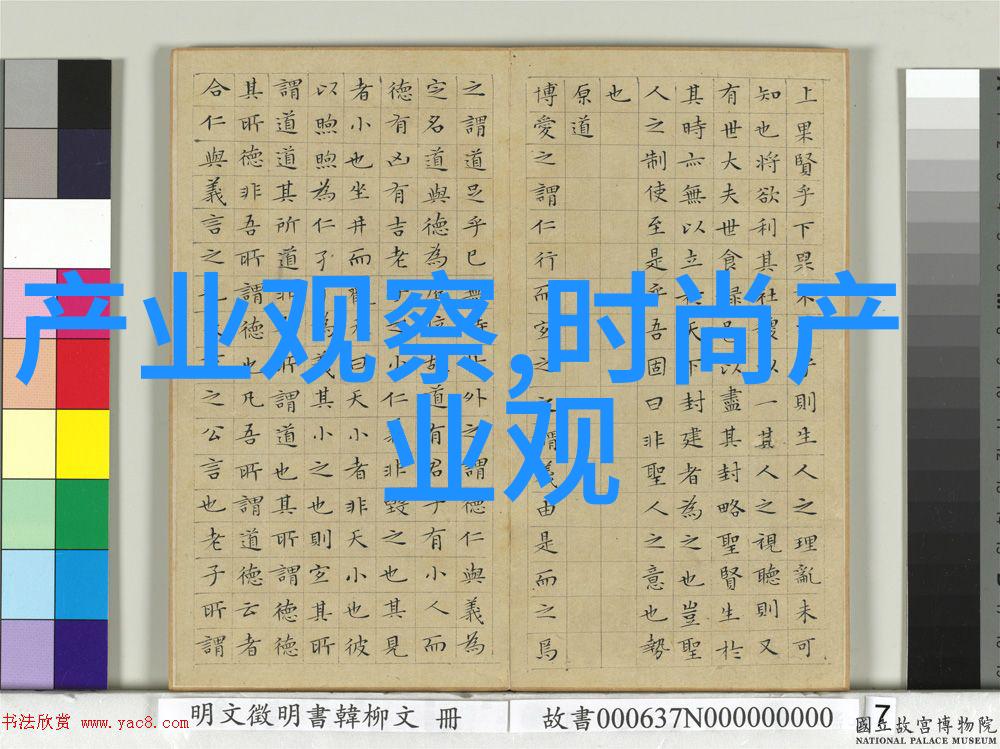 上果賢乎下果不乎則生人之理亂未可
知也將欲利其社稷以一其人之視聽則又
有世大夫世食祿邑以盡其封略聖賢生於
其時亦無以立於天下封建者為之也豈聖
人之制使至是乎吾固曰非聖人之意也勢
也
原道
博愛之謂仁行而宜之之謂義由是而之焉
之謂道足乎已無待於外之謂德仁與義為
定名道與德為虛位故道有君子有小人而
德有凶有吉老子之小仁義非毀之也其見
者小也坐井而觀天曰天小者非天小也彼
以煦煦為仁孑為義其小之也則宜其所
謂道道其所道非所謂道也其所謂德德
其所德非吾所謂德也凡吾所謂道德云者
合仁與義言之也天下之公言也老子所謂
产业观察,时尚产
业观
明文徵明書韓柳文 冊
故書000637N000000000
7
國立故宮博物院
NATIONAL PALACE MUSEUM
书法欣赏 www.yac8.com